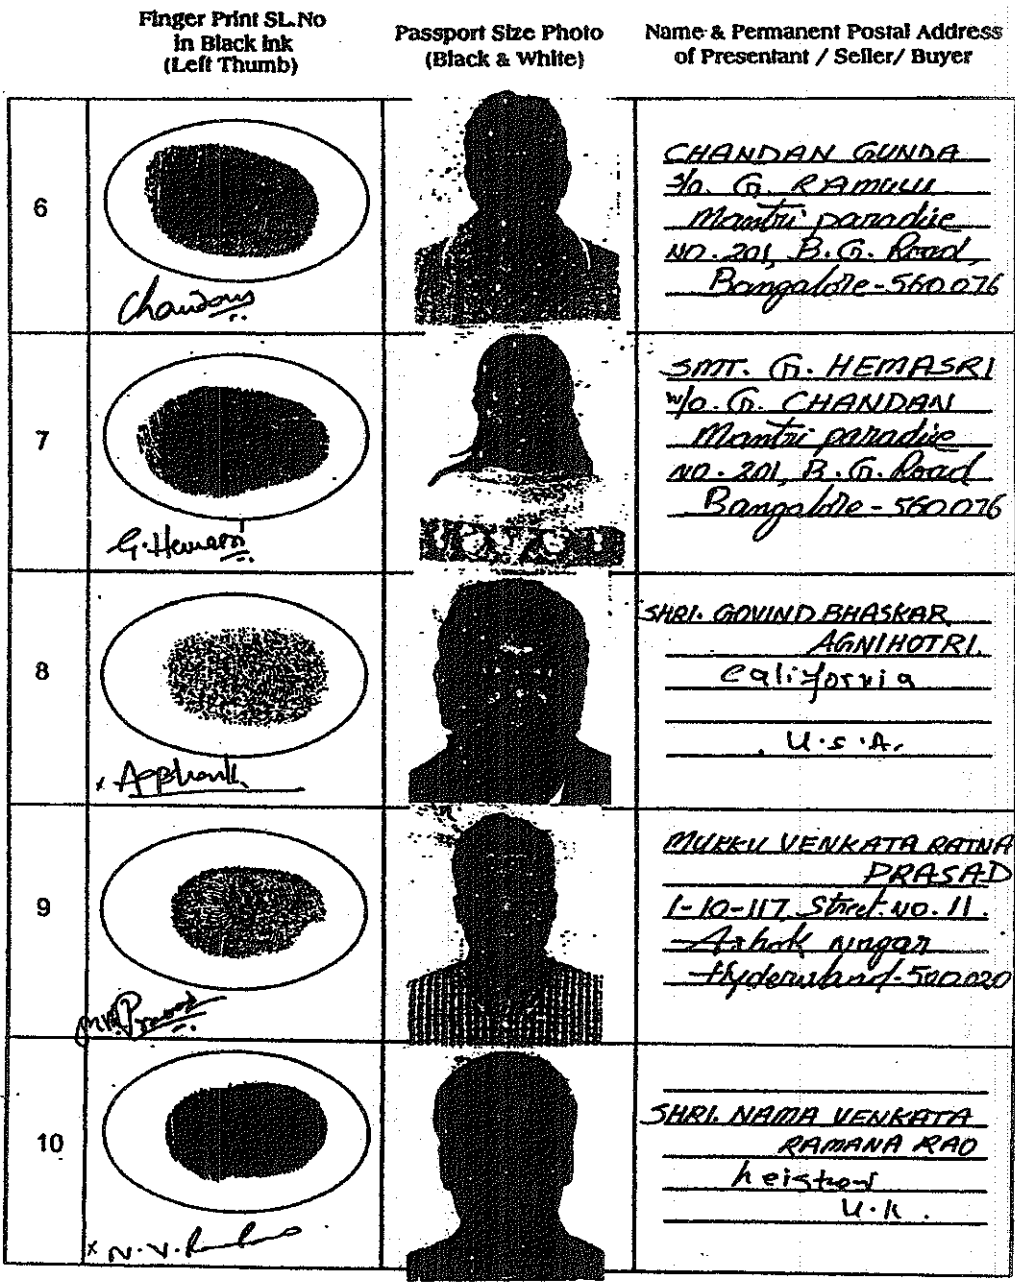 Finger Print SL.No
in Black Ink
(Left Thumb)
Passport Size Photo
(Black & White)
Name & Permanent Postal Address
of Presentant / Seller/ Buyer
6
Chandan
CHANDAN GUNDA
S/o. G. RAMULU
Mantri paradise
NO. 201, B.G. Road,
Bangalore-560076
7
G. Hemasri
SMT. G. HEMASRI
W/o. G. CHANDAN
Mantri paradise
NO. 201, B.G. Road
Bangalore-560076
8
SHRI. GOVIND BHASKAR
AGNIHOTRI.
California
U.S.A.
9
Prasad
MUKKU VENKATA RATNA
PRASAD
1-10-117 Street. NO. 11.
Ashok nagar
Hyderabad-500020
10
x N.V.
SHRI. NAMA VENKATA
RAMANA RAO
U.K.